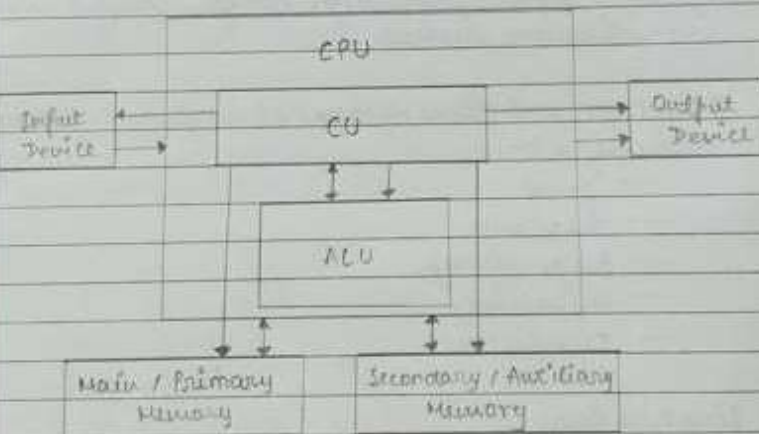 CPU
Input
Device
CU
Output
Device
ALU
Main / Primary
Memory
Secondary / Auxiliary
Memory